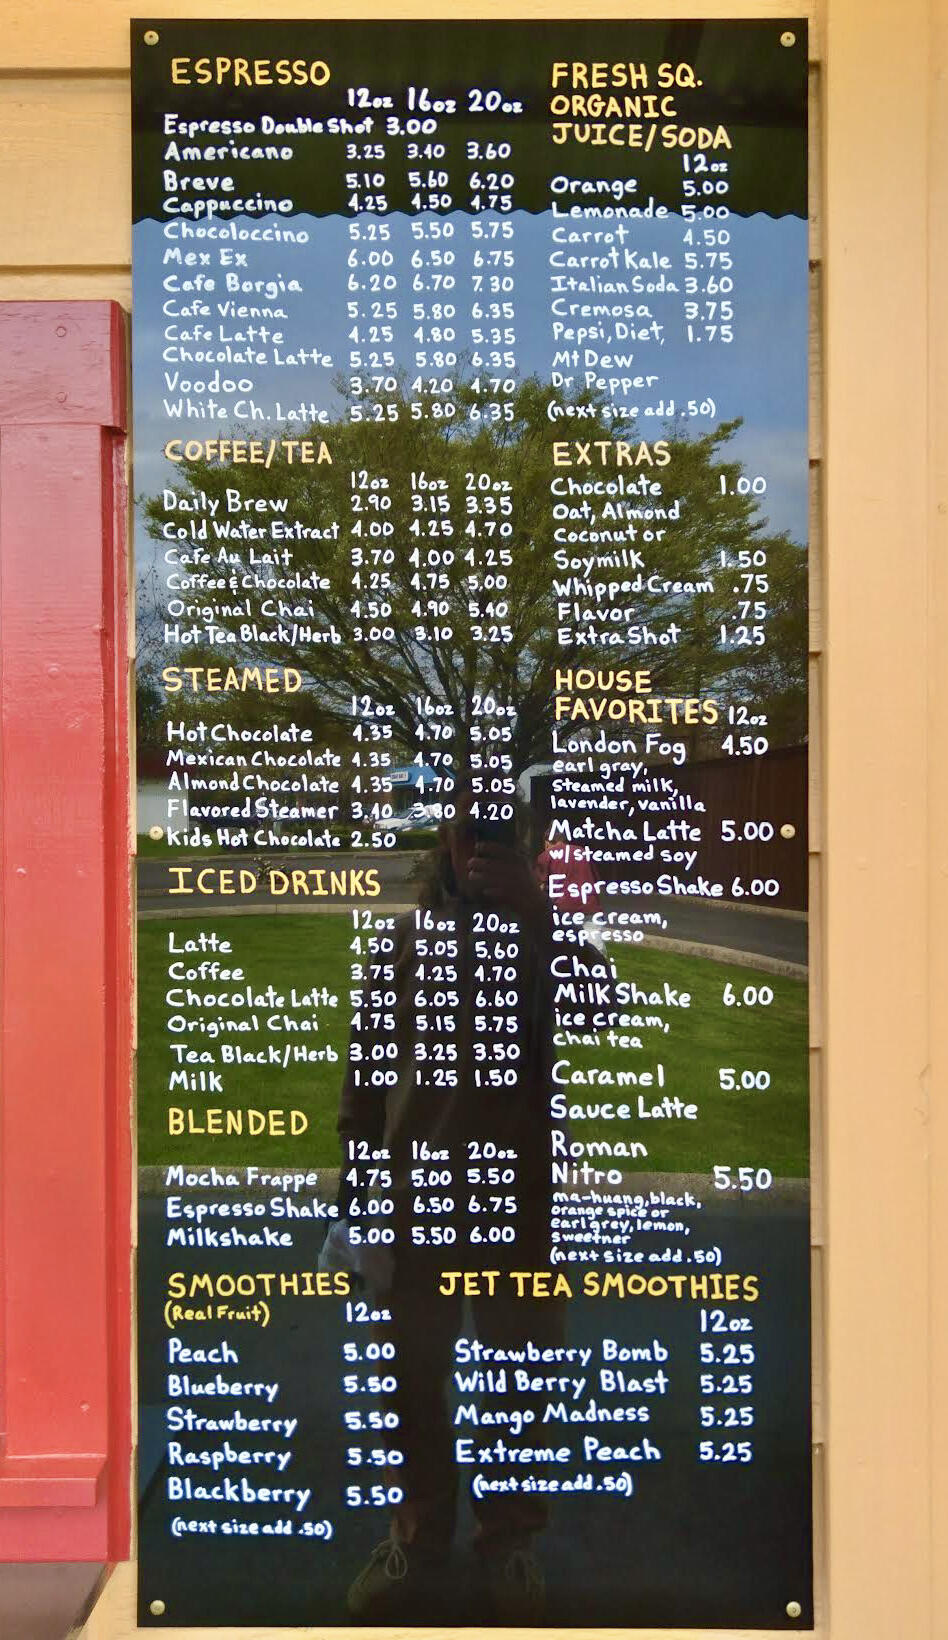 ESPRESSO
12oz 16oz 20oz
Espresso Double Shot 3.00
Americano 3.25 3.40 3.60
Breve 5.10 5.60 6.20
Cappuccino 4.25 4.50 4.75
Chocoloccino 5.25 5.50 5.75
Mex Ex 6.00 6.50 6.75
Cafe Borgia 6.20 6.70 7.30
Cafe Vienna 5.25 5.80 6.35
Cafe Latte 4.25 4.80 5.35
Chocolate Latte 5.25 5.80 6.35
Voodoo 3.70 4.20 4.70
White Ch. Latte 5.25 5.80 6.35
COFFEE/TEA
12oz 16oz 20oz
Daily Brew 2.90 3.15 3.35
Cold Water Extract 4.00 4.25 4.70
Cafe Au Lait 3.70 4.00 4.25
Coffee & Chocolate 4.25 4.75 5.00
Original Chai 4.50 4.90 5.40
Hot Tea Black/Herb 3.00 3.10 3.25
STEAMED
12oz 16oz 20oz
Hot Chocolate 4.35 4.70 5.05
Mexican Chocolate 4.35 4.70 5.05
Almond Chocolate 4.35 4.70 5.05
Flavored Steamer 3.40 3.80 4.20
Kids Hot Chocolate 2.50
ICED DRINKS
12oz 16oz 20oz
Latte 4.50 5.05 5.60
Coffee 3.75 4.25 4.70
Chocolate Latte 5.50 6.05 6.60
Original Chai 4.75 5.15 5.75
Tea Black/Herb 3.00 3.25 3.50
Milk 1.00 1.25 1.50
BLENDED
12oz 16oz 20oz
Mocha Frappe 4.75 5.00 5.50
Espresso Shake 6.00 6.50 6.75
Milkshake 5.00 5.50 6.00
FRESH SQ.
ORGANIC
JUICE/SODA
12oz
Orange 5.00
Lemonade 5.00
Carrot 4.50
Carrot Kale 5.75
Italian Soda 3.60
Cremosa 3.75
Pepsi, Diet, 1.75
Mt Dew
Dr Pepper
(next size add .50)
EXTRAS
Chocolate 1.00
Oat, Almond
Coconut or
Soymilk 1.50
Whipped Cream .75
Flavor .75
Extra Shot 1.25
HOUSE
FAVORITES 12oz
London Fog 4.50
earl gray,
steamed milk,
lavender, vanilla
Matcha Latte 5.00
w/ steamed soy
Espresso Shake 6.00
ice cream,
espresso
Chai
Milk Shake 6.00
ice cream,
chai tea
Caramel 5.00
Sauce Latte
Roman
Nitro 5.50
ma-huang, black,
orange spice or
earl grey, lemon,
sweetner
(next size add .50)
SMOOTHIES
(Real Fruit) 12oz
Peach 5.00
Blueberry 5.50
Strawberry 5.50
Raspberry 5.50
Blackberry 5.50
(next size add .50)
JET TEA SMOOTHIES
12oz
Strawberry Bomb 5.25
Wild Berry Blast 5.25
Mango Madness 5.25
Extreme Peach 5.25
(next size add .50)